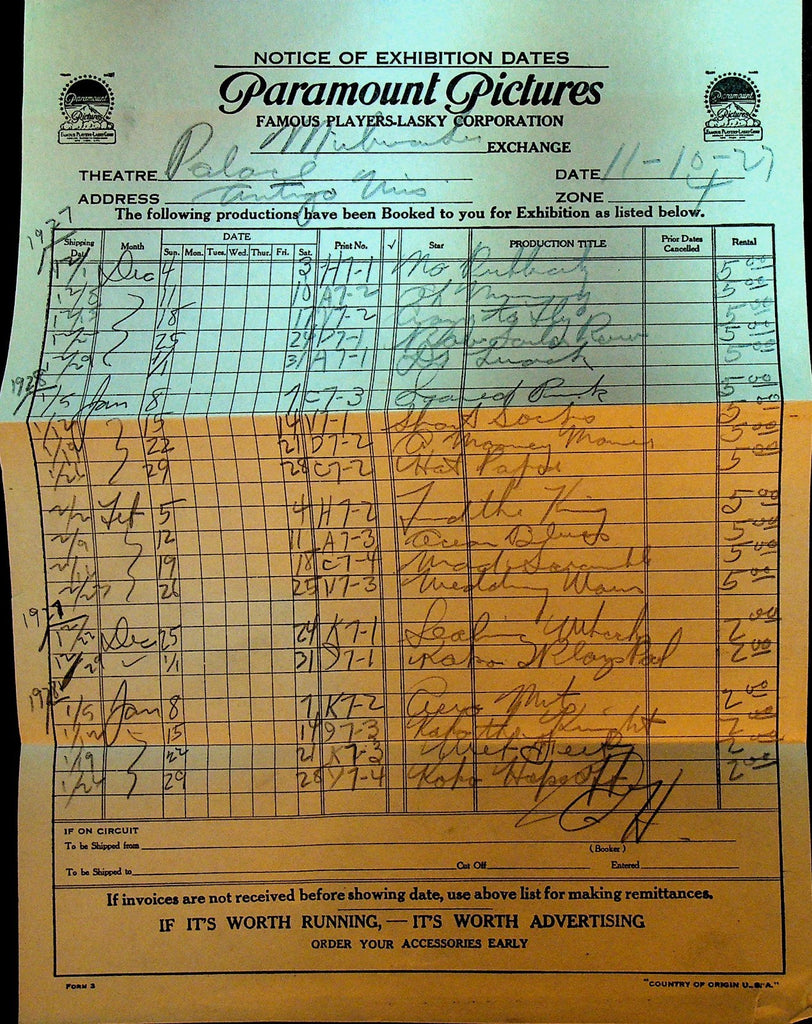 NOTICE OF EXHIBITION DATES
Paramount Pictures
FAMOUS PLAYERS-LASKY CORPORATION
Milwaukee EXCHANGE
THEATRE Palace DATE 11-10-27
ADDRESS Antigo Wis ZONE 4
The following productions have been Booked to you for Exhibition as listed below.
1927
Shipping Date Month DATE Sun. Mon. Tues. Wed. Thur. Fri. Sat. Print No. ✓ Star PRODUCTION TITLE Prior Dates Cancelled Rental
12/1 Dec 4 3 H7-1 No Publicity 5 00
12/8 11 10 A7-2 5 00
18 17 V7-2 5 00
25 24 D7-1 5 00
12/29 1/1 31 A7-1 5 00
1928
1/5 Jan 8 7 C7-3 Scared Pink 5 00
1/12 15 14 V7-1 Short Socks 5
1/19 22 21 D7-2 A Mooney Mariner 5 00
1/26 29 28 C7-2 5 00
2/2 Feb 5 4 H7-2 Find the King 5 00
2/9 12 11 A7-3 Ocean Blues 5 00
19 18 C7-4 Mad Scrambles 5 00
26 25 V7-3 Wedding Wows 5 00
1927
12/22 Dec 25 24 K7-1 2 00
12/29 1/1 31 Koko Plays Pool 2 00
1928
1/5 Jan 8 7 K7-2 Aero Nuts 2 00
1/12 15 14 Koko the Knight 2
1/19 22 21 K7-3 2
1/26 29 28 Koko Hops Off 2 00
IF ON CIRCUIT
To be Shipped from (Booker)
To be Shipped to Cut Off Entered
If invoices are not received before showing date, use above list for making remittances.
IF IT'S WORTH RUNNING, — IT'S WORTH ADVERTISING
ORDER YOUR ACCESSORIES EARLY
FORM 3 "COUNTRY OF ORIGIN U.S.A."